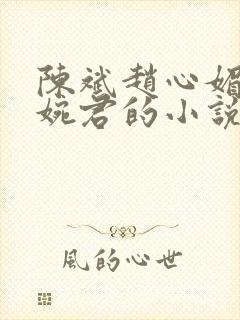 陳斌趙心媚
婉君的小說
風的心世